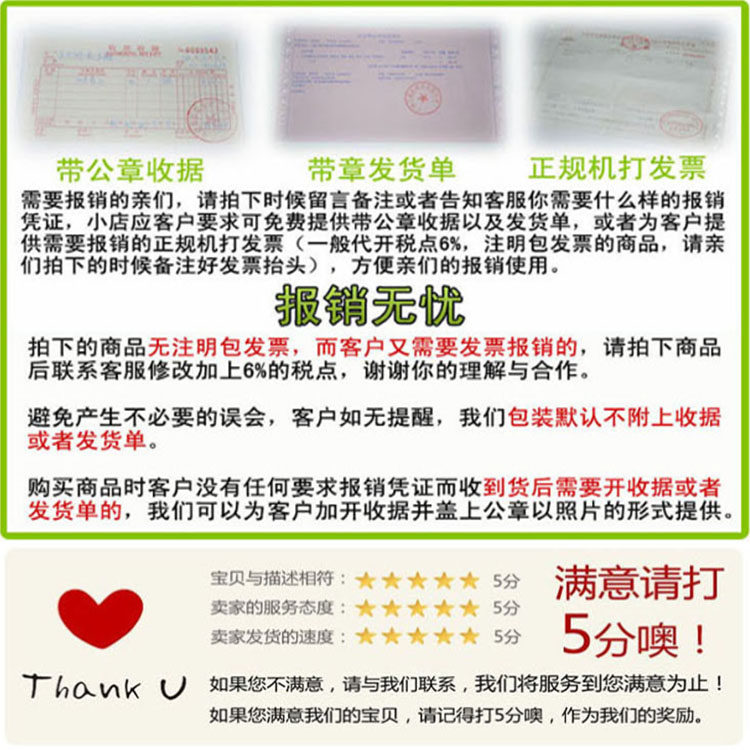 带公章收据
带章发货单
正规机打发票
需要报销的亲们，请拍下时候留言备注或者告知客服你需要什么样的报销
凭证，小店应客户要求可免费提供带公章收据以及发货单，或者为客户提
供需要报销的正规机打发票（一般代开税点6%，注明包发票的商品，请亲
们拍下的时候备注好发票抬头），方便亲们的报销使用。
报销无忧
拍下的商品无注明包发票，而客户又需要发票报销的，请拍下商品
后联系客服修改加上6%的税点，谢谢你的理解与合作。
避免产生不必要的误会，客户如无提醒，我们包装默认不附上收据
或者发货单。
购买商品时客户没有任何要求报销凭证而收到货后需要开收据或者
发货单的，我们可以为客户加开收据并盖上公章以照片的形式提供。
宝贝与描述相符： 5分
卖家的服务态度： 5分
卖家发货的速度： 5分
满意请打
5分噢！
Thank U
如果您不满意，请与我们联系，我们将服务到您满意为止！
如果您满意我们的宝贝，请记得打5分噢，作为我们的奖励。